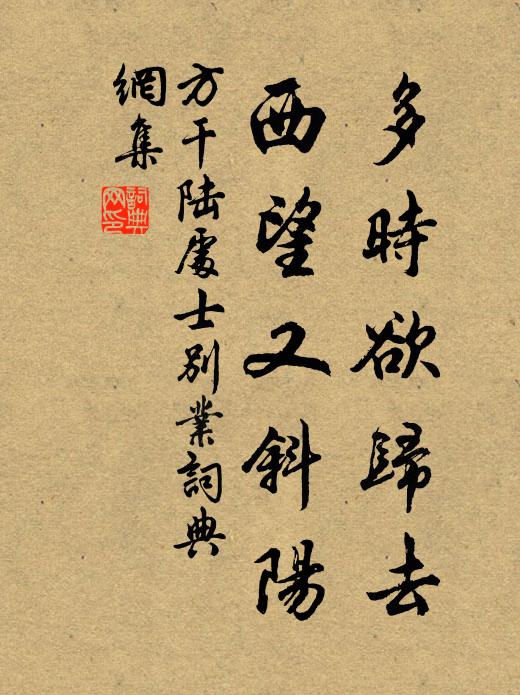 多時欲歸去
西望又斜陽
方干陆處士別業詞典
網集
詞典网印